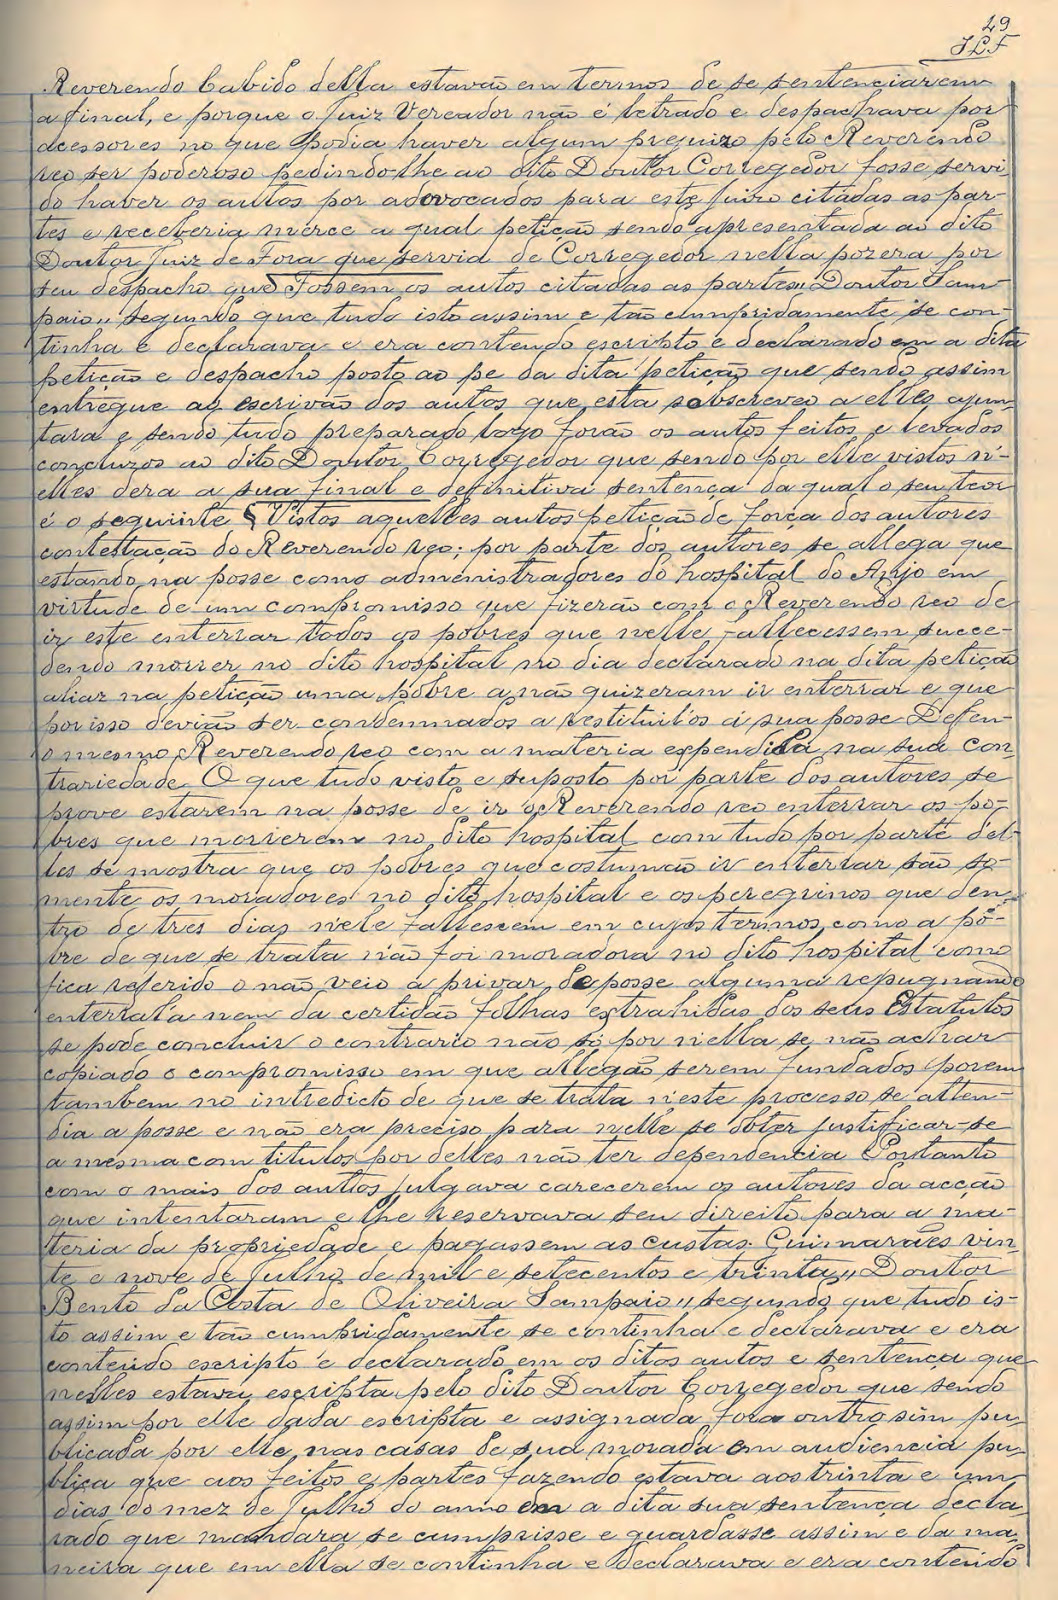 49
JLF
Reverendo Cabido della estavão em termos de se sentenciarem
a final, e porque o Juiz Vereador não é letrado e despachava por
acessores no que podia haver algum prejuizo pelo Reverendo
reo ser poderoso pedindo lhe ao dito Doutor Corregedor fosse servi
do haver os autos por adovocados para este Juizo citadas as par-
tes e receberia merce a qual petição sendo apresentada ao dito
Doutor Juiz de Fora que servia de Corregedor nella pozera por
seu despacho que Fossem os autos citadas as partes" Doutor Sam-
paio" segundo que tudo isto assim e tão cumpridamente se con-
tinha e declarava e era contendo escripto e declarado em a dita
petição e despacho posto ao pe da dita petição que sendo assim
entregue ao escrivão dos autos que esta sobscreveo a elles ajun-
tara e sendo tudo preparado logo forão os autos feitos e levados
concluzos ao dito Doutor Corregedor que sendo por elle vistos n'-
elles dera a sua final e definitiva sentença da qual o seu teor
é o seguinte § Vistos aquelles autos petição de força dos autores
contestação do Reverendo reo; por parte dos autores se allega que
estando na posse como administradores do hospital do Anjo em
virtude de um compromisso que fizerão com o Reverendo reo de
ir este enterrar todos os pobres que nelle fallecessem succe-
dendo morrer no dito hospital no dia declarado na dita petição
aliaz na petição uma pobre a não quizeram ir enterrar e que
por isso devião ser condemnados a restituil'os á sua posse Defen-
o mesmo Reverendo reo com a materia expendida na sua con-
trariedade O que tudo visto e suposto por parte dos autores se
prove estarem na posse de ir o Reverendo reo enterrar os po-
bres que morrerem no dito hospital com tudo por parte d'el-
les se mostra que os pobres que costumão ir enterrar são so-
mente os moradores no dito hospital e os peregrinos que den-
tro de tres dias nele fallescem em cujos termos como a po-
bre de que se trata não foi moradora no dito hospital como
fica referido o não veio a privar de posse alguma repugnando
enterral'a nem da certidão folhas extrahidas dos seus Estatutos
se pode concluir o contrario não só por nella se não achar
copiado o compromisso em que allegão serem fundados porem
tambem no intredicto de que se trata neste processo se atten-
dia a posse e não era preciso para nelle se obter justificar-se
a mesma com titulos por delles não ter dependencia Portanto
com o mais dos autos julgava carecerem os autores da acção
que intentaram e lhe reservava seu direito para a ma-
teria da propriedade e pagassem as custas. Guimarães vin-
te e nove de Julho de mil e setecentos e trinta" Doutor
Bento da Costa de Oliveira Sampaio" segundo que tudo is-
to assim e tão cumbridamente se continha e declarava e era
conteúdo escripto e declarado em os ditos autos e sentença que
nelles estava escripta pelo dito Doutor Corregedor que sendo
assim por elle dada escripta e assignada fora outro sim pu-
blicada por elle nas casas de sua morada em audiencia pu-
blica que aos feitos e partes fazendo estava aos trinta e um
dias do mez de Julho do anno em a dita sua sentença decla-
rado que mandara se cumprisse e guardasse assim e da ma-
neira que em ella se continha e declarava e era conteúdo